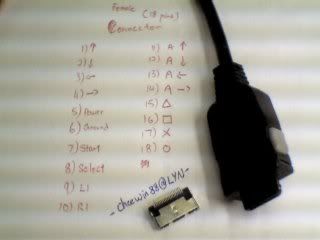 Female (18 pins)
Connector
1) ↑
2) ↓
3) ←
4) →
5) Power
6) Ground
7) Start
8) Select
9) L1
10) R1
11) A ↑
12) A ↓
13) A ←
14) A →
15) △
16) □
17) X
18) O
-chaewin88@LYN-